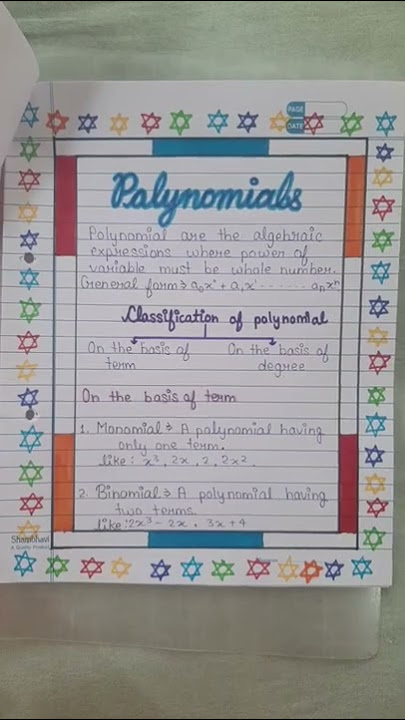 PAGE
DATE
Polynomials
Polynomial are the algebraic
expressions where power of
variable must be whole number.
General form⇒ a₀x⁰ + a₁x¹ ....... aₙxⁿ
Classification of polynomial
On the basis of term
On the basis of degree
On the basis of term
1. Monomial⇒ A polynomial having
only one term.
like: x³, 2x, 2, 2x².
2. Binomial⇒ A polynomial having
two terms.
like: 2x³ - 2x, 3x+4
Shambhavi
A Quality Product